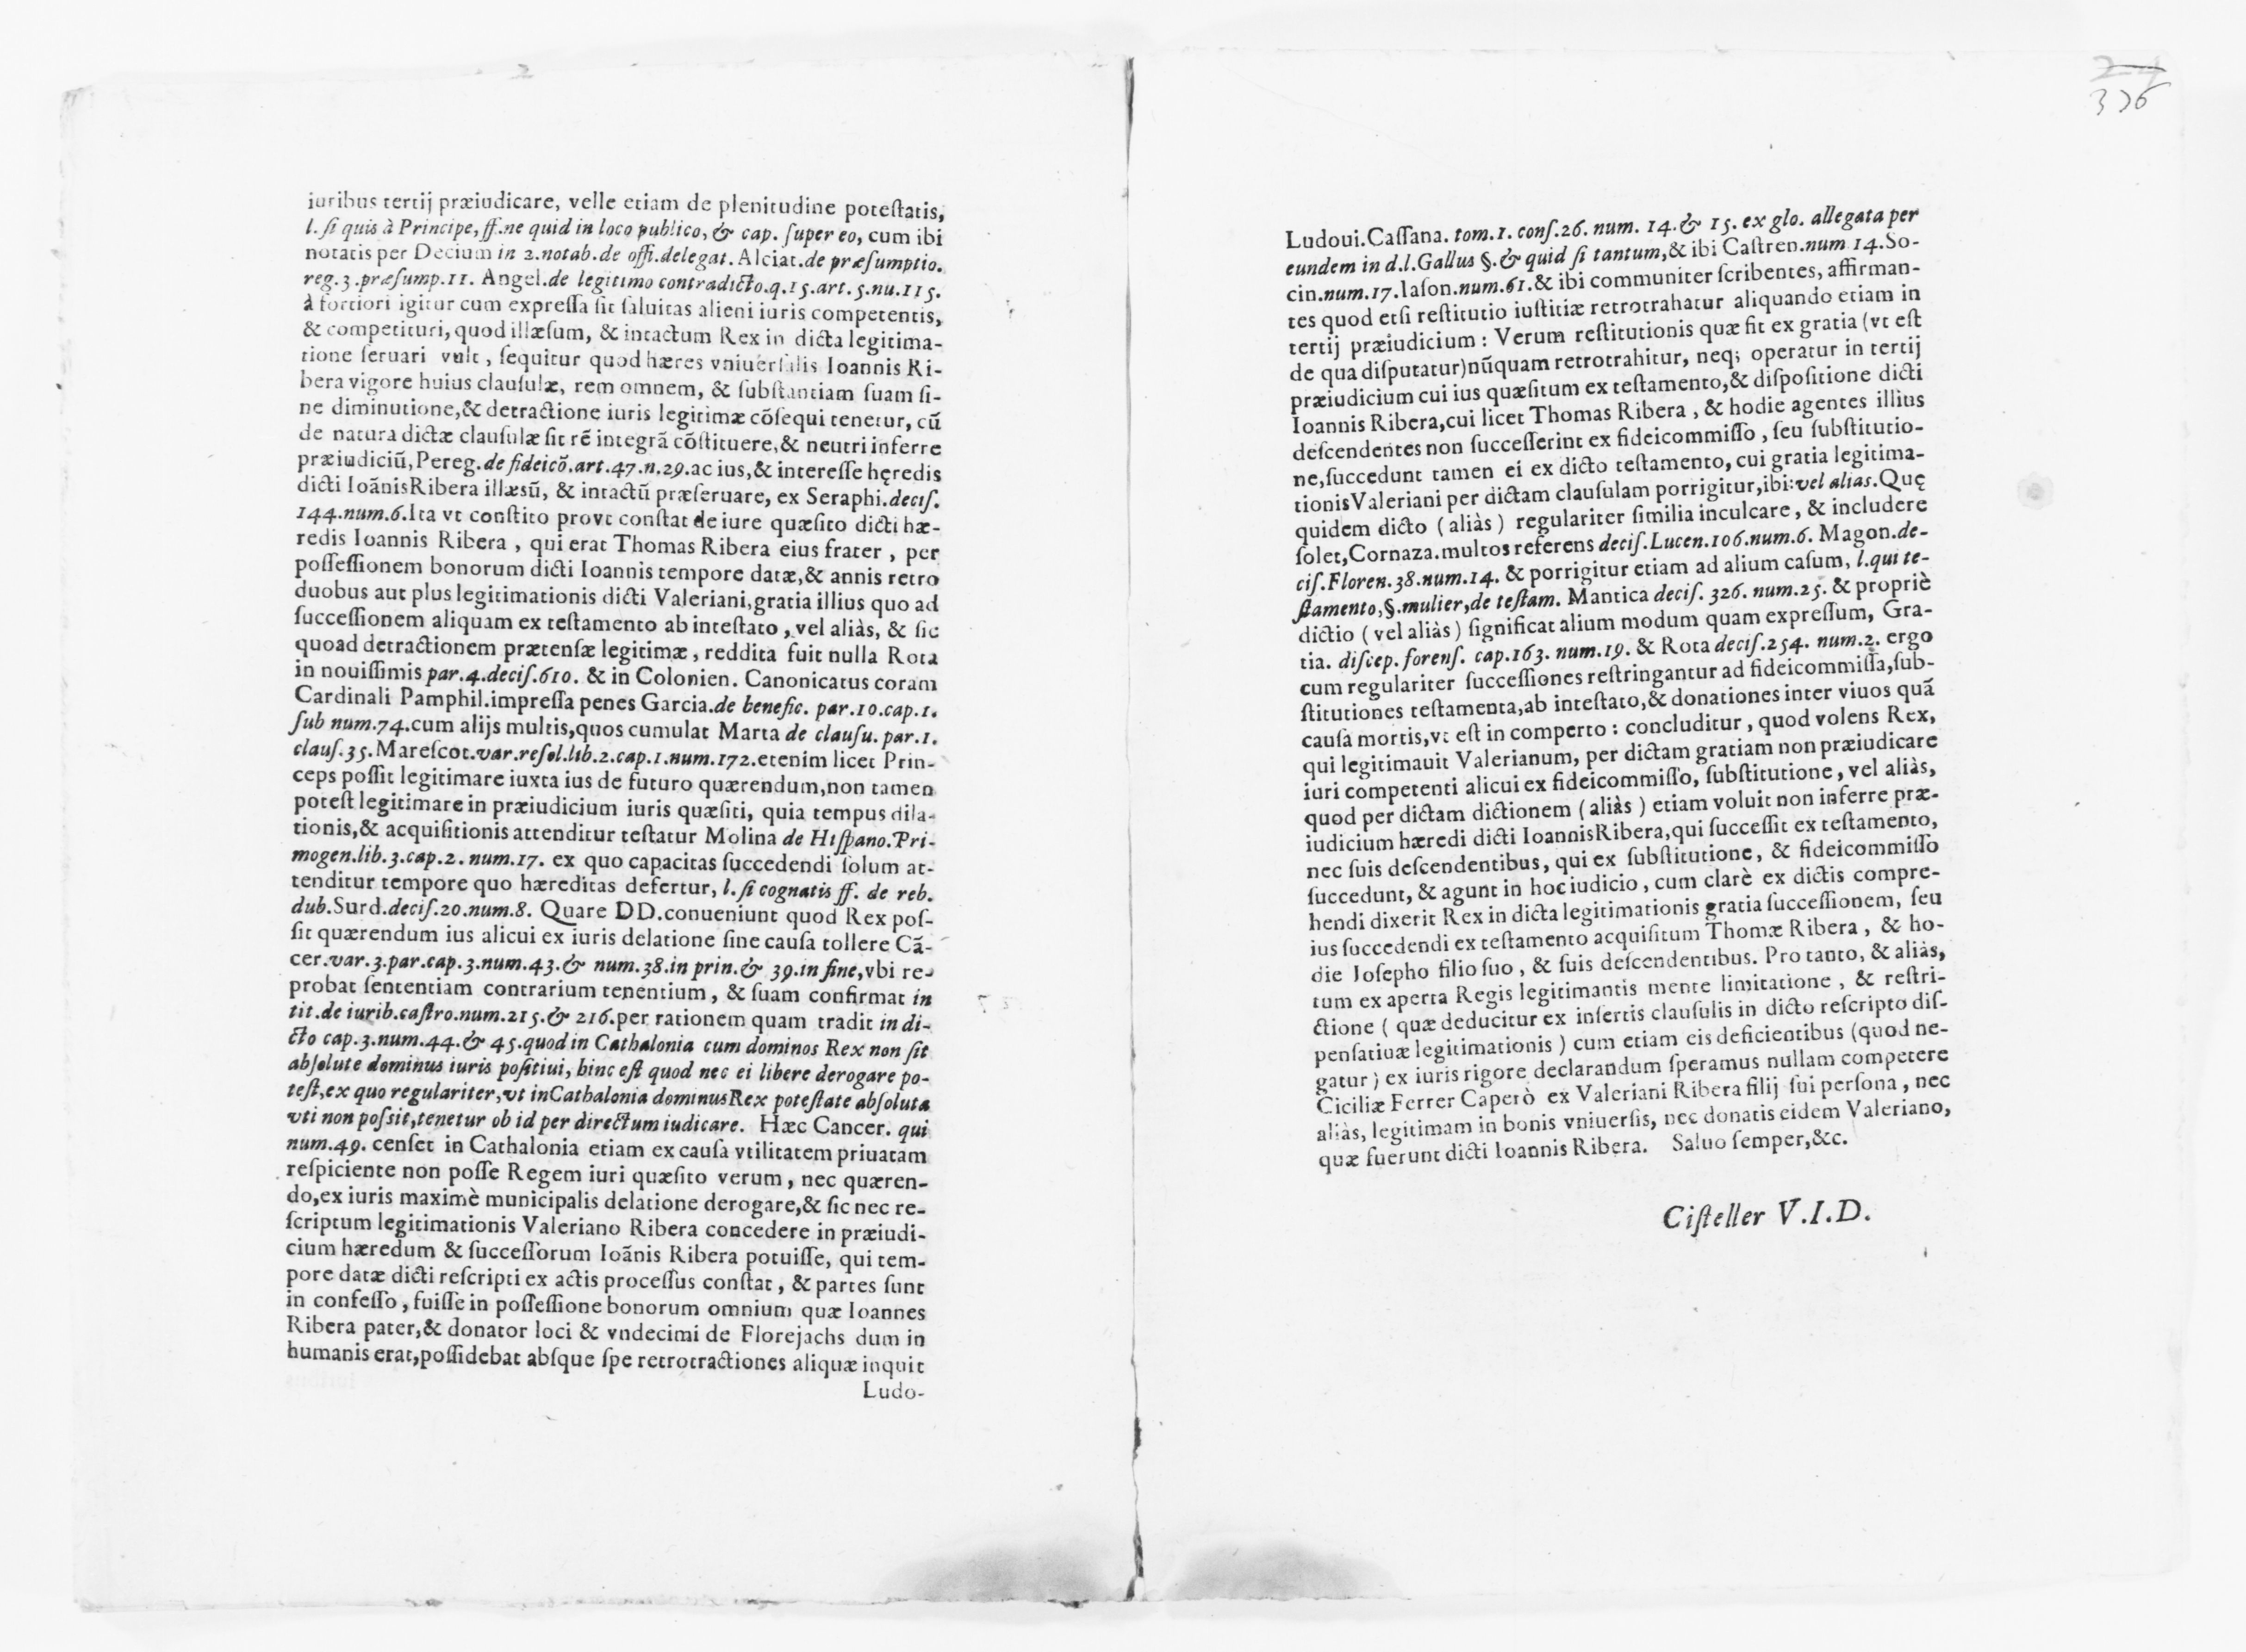 2
iuribus tertij præiudicare, velle etiam de plenitudine potestatis,
l. si quis à Principe, ff. ne quid in loco publico, & cap. super eo, cum ibi
notatis per Decium in 2. notab. de offi. delegat. Alciat. de præsumptio.
reg. 3. præsump. 11. Angel. de legitimo contradicto. q. 15. art. 5. nu. 115.
à fortiori igitur cum expressa sit saluitas alieni iuris competentis,
& competituri, quod illæsum, & intactum Rex in dicta legitima-
tione seruari vult, sequitur quod hæres vniuersalis Ioannis Ri-
bera vigore huius clausulæ, rem omnem, & substantiam suam si-
ne diminutione, & detractione iuris legitimæ cõsequi tenetur, cũ
de natura dictæ clausulæ sit rẽ integrã cõstituere, & neutri inferre
præiudiciũ, Pereg. de fideicõ. art. 47. n. 29. ac ius, & interesse hęredis
dicti Ioãnis Ribera illæsũ, & intactũ præseruare, ex Seraphi. decis.
144. num. 6. Ita vt constito provt constat de iure quæsito dicti hæ-
redis Ioannis Ribera, qui erat Thomas Ribera eius frater, per
possessionem bonorum dicti Ioannis tempore datæ, & annis retro
duobus aut plus legitimationis dicti Valeriani, gratia illius quo ad
successionem aliquam ex testamento ab intestato, vel aliàs, & sic
quoad detractionem prætensæ legitimæ, reddita fuit nulla Rota
in nouissimis par. 4. decis. 610. & in Colonien. Canonicatus coram
Cardinali Pamphil. impressa penes Garcia. de benefic. par. 10. cap. 1.
sub num. 74. cum alijs multis, quos cumulat Marta de clausu. par. 1.
claus. 35. Marescot. var. resol. lib. 2. cap. 1. num. 172. etenim licet Prin-
ceps possit legitimare iuxta ius de futuro quærendum, non tamen
potest legitimare in præiudicium iuris quæsiti, quia tempus dila-
tionis, & acquisitionis attenditur testatur Molina de Hispano. Pri-
mogen. lib. 3. cap. 2. num. 17. ex quo capacitas succedendi solum at-
tenditur tempore quo hæreditas defertur, l. si cognatis ff. de reb.
dub. Surd. decis. 20. num. 8. Quare DD. conueniunt quod Rex pos-
sit quærendum ius alicui ex iuris delatione sine causa tollere Cã-
cer. var. 3. par. cap. 3. num. 43. & num. 38. in prin. & 39. in fine, vbi re-
probat sententiam contrarium tenentium, & suam confirmat in
tit. de iurib. castro. num. 215. & 216. per rationem quam tradit in di-
cto cap. 3. num. 44. & 45. quod in Cathalonia cum dominos Rex non sit
absolute dominus iuris positiui, hinc est quod nec ei libere derogare po-
test, ex quo regulariter, vt in Cathalonia dominus Rex potestate absoluta
vti non possit, tenetur ob id per directum iudicare. Hæc Cancer. qui
num. 49. censet in Cathalonia etiam ex causa vtilitatem priuatam
respiciente non posse Regem iuri quæsito verum, nec quæren-
do, ex iuris maximè municipalis delatione derogare, & sic nec re-
scriptum legitimationis Valeriano Ribera concedere in præiudi-
cium hæredum & successorum Ioãnis Ribera potuisse, qui tem-
pore datæ dicti rescripti ex actis processus constat, & partes sunt
in confesso, fuisse in possessione bonorum omnium quæ Ioannes
Ribera pater, & donator loci & vndecimi de Florejachs dum in
humanis erat, possidebat absque spe retrotractiones aliquæ inquit
Ludo-
24
376
Ludoui. Cassana. tom. 1. cons. 26. num. 14. & 15. ex glo. allegata per
eundem in d. l. Gallus §. & quid si tantum, & ibi Castren. num 14. So-
cin. num. 17. Iason. num. 61. & ibi communiter scribentes, affirman-
tes quod etsi restitutio iustitiæ retrotrahatur aliquando etiam in
tertij præiudicium: Verum restitutionis quæ fit ex gratia (vt est
de qua disputatur) nũquam retrotrahitur, neq; operatur in tertij
præiudicium cui ius quæsitum ex testamento, & dispositione dicti
Ioannis Ribera, cui licet Thomas Ribera, & hodie agentes illius
descendentes non successerint ex fideicommisso, seu substitutio-
ne, succedunt tamen ei ex dicto testamento, cui gratia legitima-
tionis Valeriani per dictam clausulam porrigitur, ibi: vel alias. Quę
quidem dicto (aliàs) regulariter similia inculcare, & includere
solet, Cornaza. multos referens decis. Lucen. 106. num. 6. Magon. de-
cis. Floren. 38. num. 14. & porrigitur etiam ad alium casum, l. qui te-
stamento, §. mulier, de testam. Mantica decis. 326. num. 25. & propriè
dictio (vel aliàs) significat alium modum quam expressum, Gra-
tia. discep. forens. cap. 163. num. 19. & Rota decis. 254. num. 2. ergo
cum regulariter successiones restringantur ad fideicommissa, sub-
stitutiones testamenta, ab intestato, & donationes inter viuos quã
causa mortis, vt est in comperto: concluditur, quod volens Rex,
qui legitimauit Valerianum, per dictam gratiam non præiudicare
iuri competenti alicui ex fideicommisso, substitutione, vel aliàs,
quod per dictam dictionem (aliàs) etiam voluit non inferre præ-
iudicium hæredi dicti Ioannis Ribera, qui successit ex testamento,
nec suis descendentibus, qui ex substitutione, & fideicommisso
succedunt, & agunt in hoc iudicio, cum clarè ex dictis compre-
hendi dixerit Rex in dicta legitimationis gratia successionem, seu
ius succedendi ex testamento acquisitum Thomæ Ribera, & ho-
die Iosepho filio suo, & suis descendentibus. Pro tanto, & aliàs,
tum ex aperta Regis legitimantis mente limitatione, & restri-
ctione (quæ deducitur ex insertis clausulis in dicto rescripto dis-
pensatiuæ legitimationis) cum etiam eis deficientibus (quod ne-
gatur) ex iuris rigore declarandum speramus nullam competere
Ciciliæ Ferrer Caperò ex Valeriani Ribera filij sui persona, nec
aliàs, legitimam in bonis vniuersis, nec donatis eidem Valeriano,
quæ fuerunt dicti Ioannis Ribera. Saluo semper, &c.
Cisteller V.I.D.